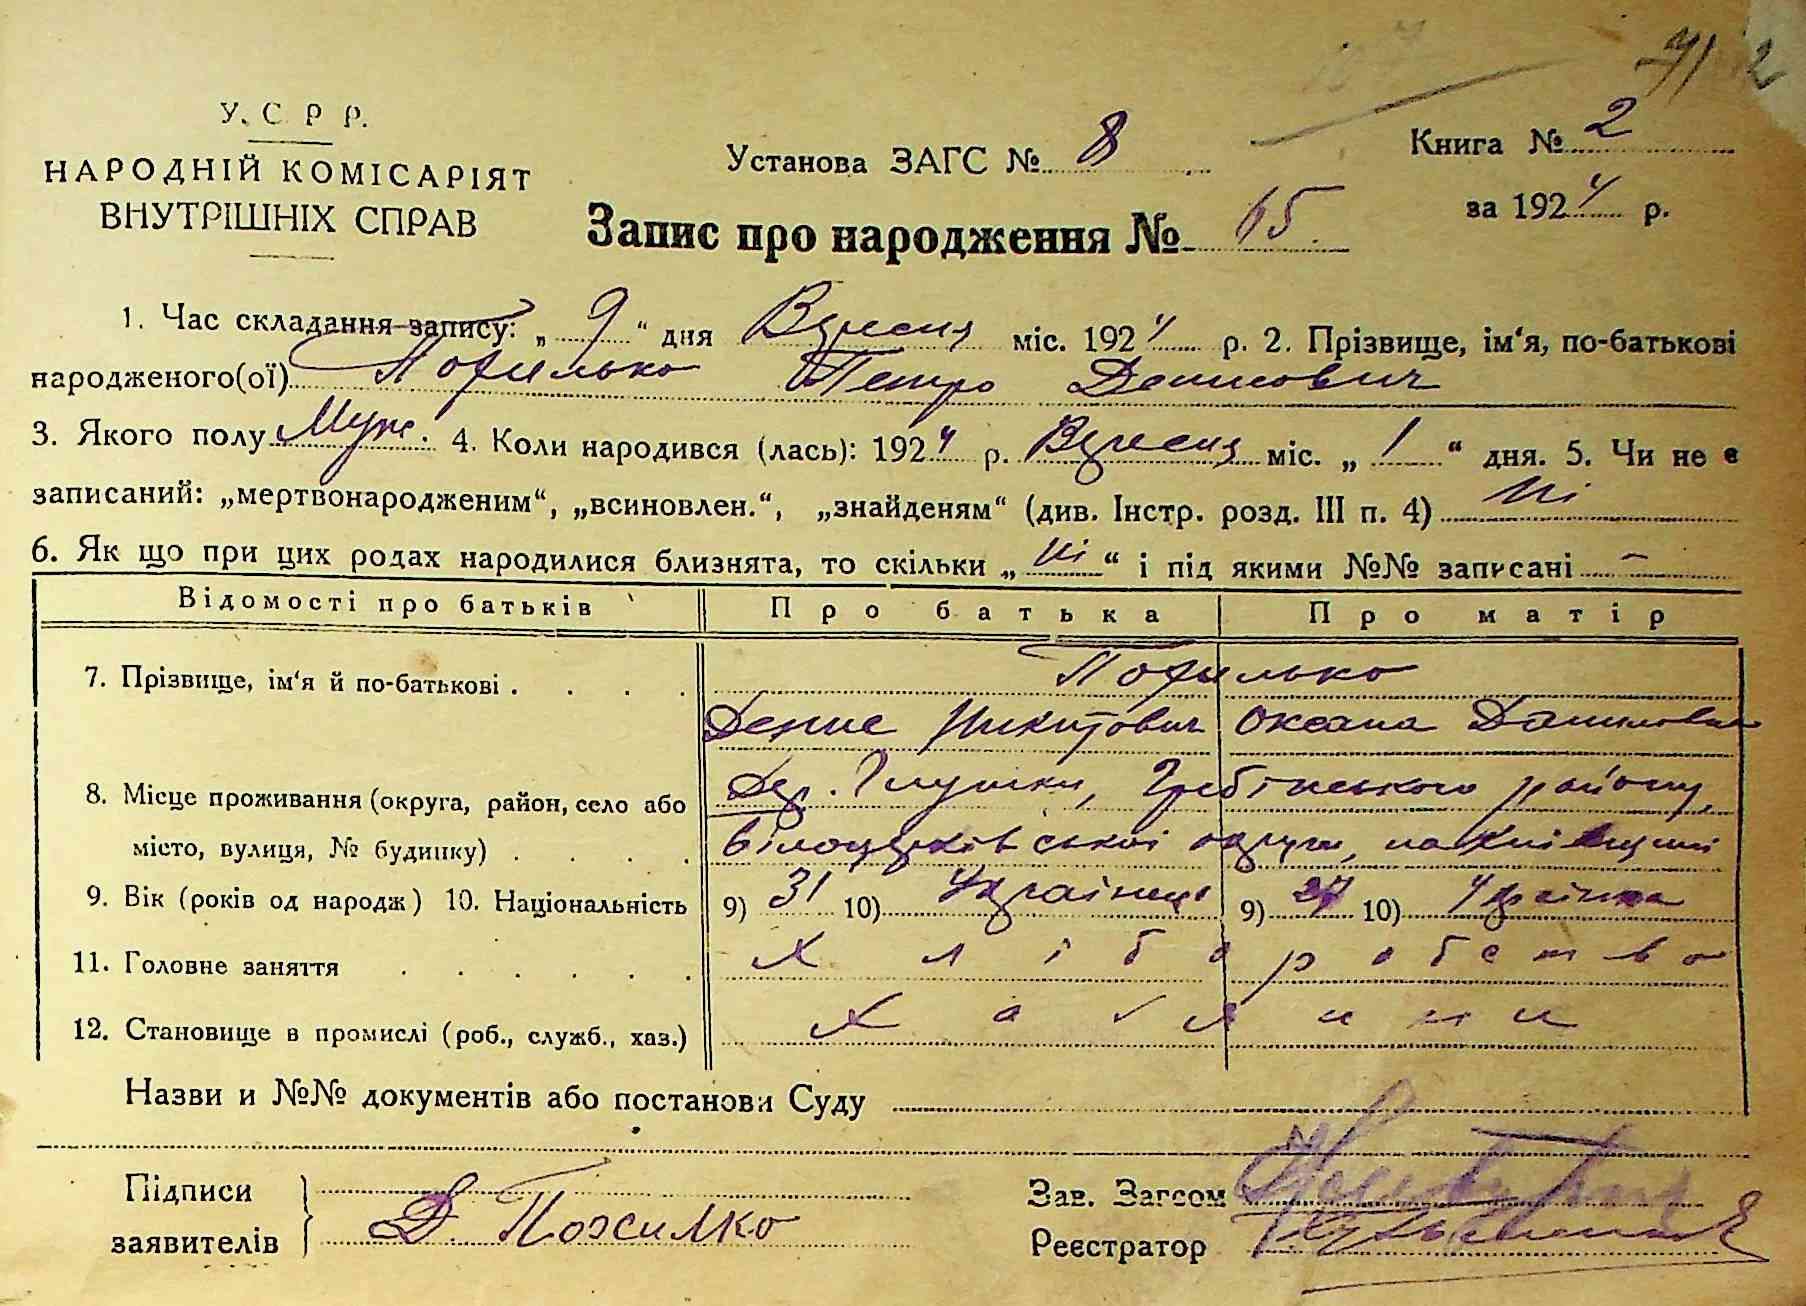 У. С. Р. Р.
НАРОДНІЙ КОМІСАРІЯТ
ВНУТРІШНІХ СПРАВ
Установа ЗАГС № 8
Книга № 2
за 1924 р.
Запис про народження № 65.
1. Час складання запису: „ 9 “ дня Вересня міс. 1924 р. 2. Прізвище, ім‘я, по-батькові
народженого(ої) Похилько Петро Денисович
3. Якого полу Муж. 4. Коли народився (лась): 1924 р. Вересня міс. „ 1 “ дня. 5. Чи не є
записаний: „мертвонародженим“, „всиновлен.“, „знайденям“ (див. Інстр. розд. III п. 4) Ні
6. Як що при цих родах народилися близнята, то скільки „ Ні “ і під якими №№ записані –
Відомості про батьків Про батька Про матір
7. Прізвище, ім‘я й по-батькові . . . . Похилько
Денис Никитович Оксана Даниловна
8. Місце проживання (округа, район, село або Дер. Глушки, Гребінського району,
місто, вулиця, № будинку) . . . . Білоцерківської округи, на Київщині
9. Вік (років од народж) 10. Національність 9) 31 10) Українець 9) 27 10) Українка
11. Головне заняття . . . . . . Хліборобство
12. Становище в промислі (роб., служб., хаз.) Хазяини
Назви и №№ документів або постанови Суду
Підписи
заявителів Д. Похилко
Зав. Загсом
Реєстратор